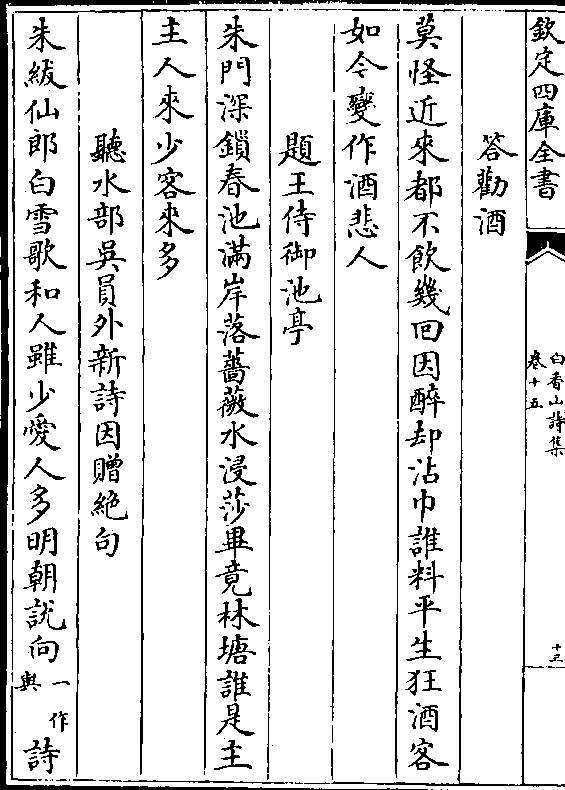 欽定四庫全書
白香山詩集
卷十五
十五
答勸酒
莫怪近來都不飲幾回因醉却沾巾誰料平生狂酒客
如今變作酒悲人
題王侍御池亭
朱門深鎖春池滿岸落薔薇水浸莎畢竟林塘誰是主
主人來少客來多
聽水部吳員外新詩因贈絶句
朱紱仙郎白雪歌和人雖少愛人多明朝説向一作與詩